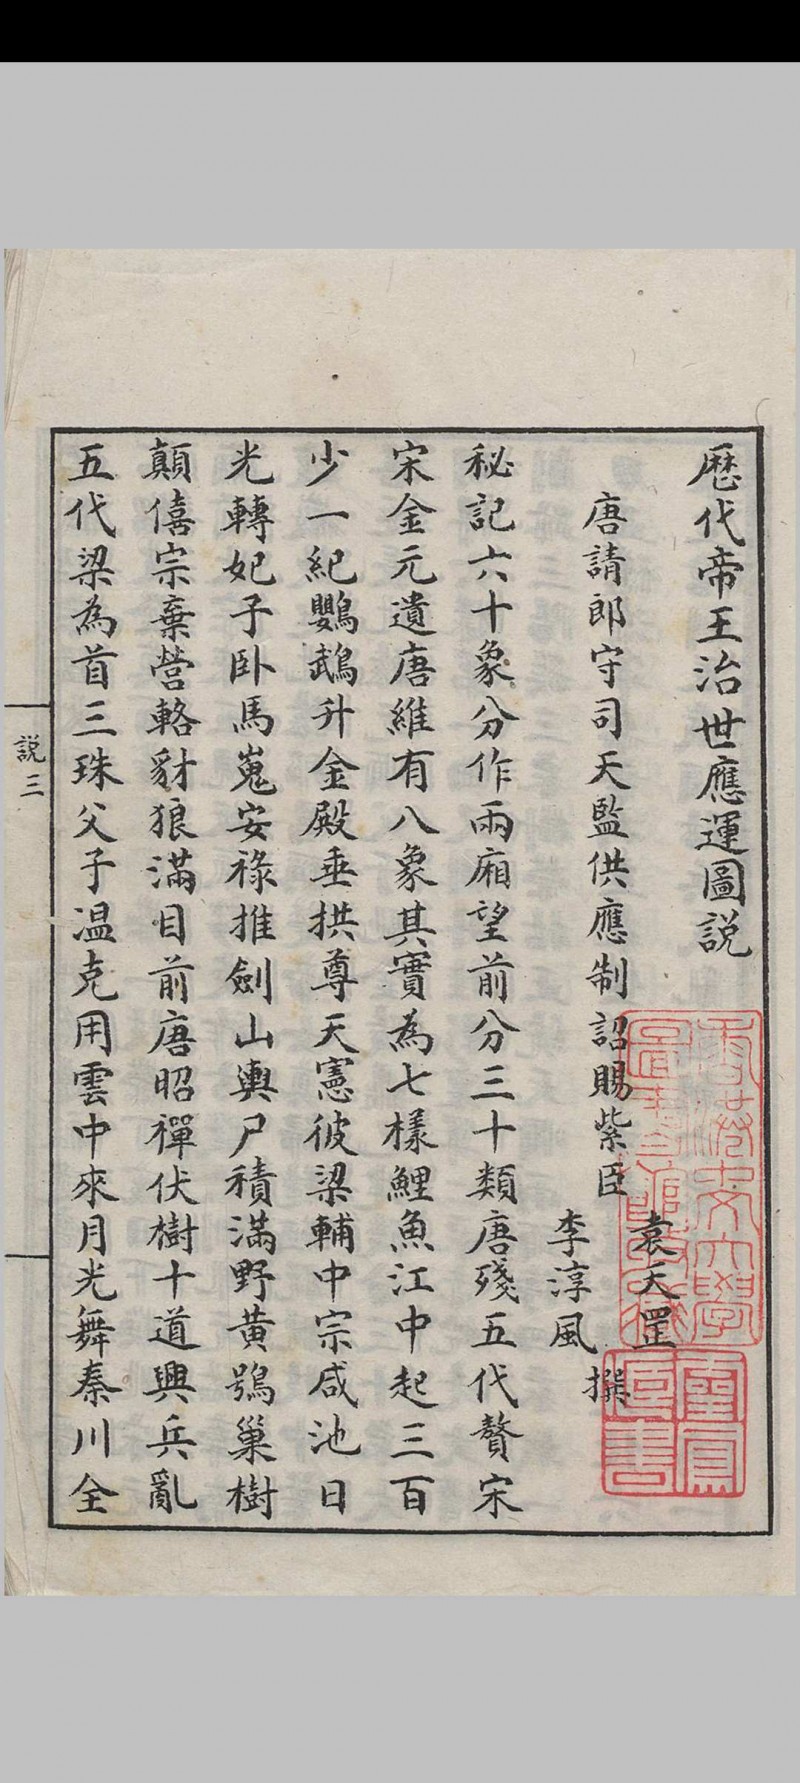 歷代帝王治世應運圖説
唐請郎守司天監供應制詔賜紫臣
袁天罡
李淳風
撰
秘記六十象分作兩廂望前分三十類唐殘五代贅宋
宋金元遺唐維有八象其實為七樣鯉魚江中起三百
少一紀鸚鵡升金殿垂拱尊天憲彼梁輔中宗咸池日
光轉妃子卧馬嵬安祿推劍山輿尸積滿野黃鴞巢樹
顛僖宗棄營輅豺狼滿目前唐昭禪伏樹十道興兵亂
五代梁為首三珠父子温克用雲中來月光舞秦川全
説三